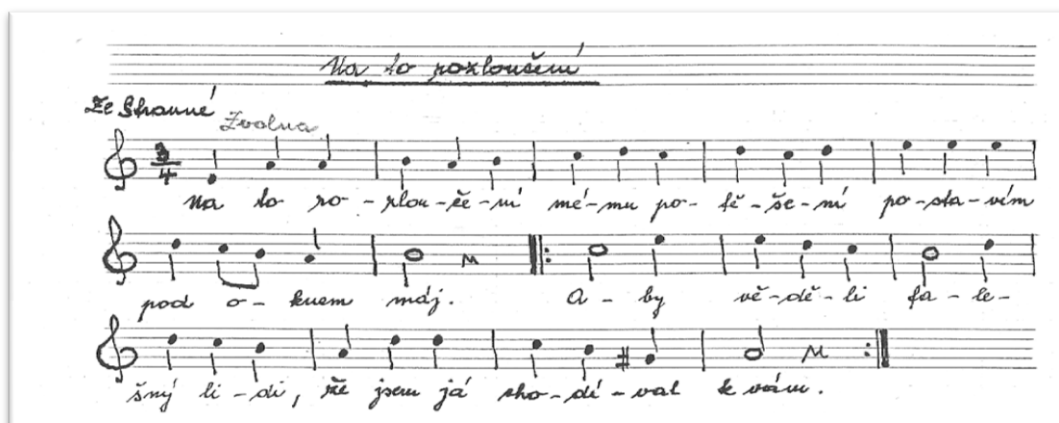 Na to rozloučení
Ze Stranné
Zvolna
3/4
Na to ro-zlou-če-ní mé-mu po-tě-še-ní po-sta-vím
pod o-knem máj. A-by vě-dě-li fa-le-
šný li-di, že jsem já cho-dí-val k vám.